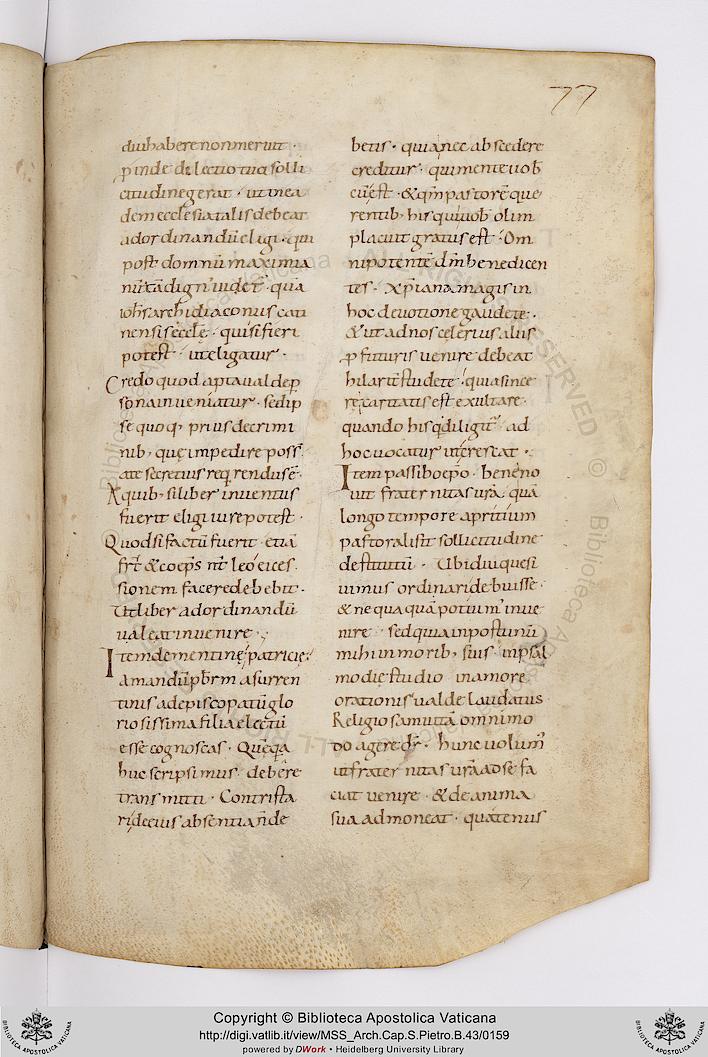 77
diu habere non meruit ·
ꝑinde dilectio tua solli
citudinē gerat · ut in ea
dem ecclesia talis debeat
ad ordinandū eligi · qui
post domnū maximiā
dign
ioħs archidiaconus cati
nensis eccłę · qui si fieri
potest · ut eligatur ·
Credo quod apta ualde ꝑ
sona inueniatur · sed ip
se quoq, prius de crimi
nib, quę impedire poss̄
a te secretius req̇rendus ē ·
A quib, si liber inuentus
fuerit eligi iure potest ·
Quod si factū fuerit · etiā
fr̄t & coep̄s leo ei ces
sionem facere debebit ·
Ut liber ad ordinandū
ualeat inuenire ·
Item de mentinę patricię
amandū pb̄rm a surren
tinis ad episcopatū glo
riosissima filia electū
esse cognoscas ·
huc scripsimus · debēre
transmitti · Contrista
ri de eius absentia n̄ de
betis · quia nec abscedere
creditur · qui mente uob̄
cū est · & qm̄ pastorē que
rentib, his qui uob̄ olim
placuit gratus est · Om
nipotentē dm̄ benedicen
tes · xp̄iana magis in
hoc deuotione gaudete ·
& ut ad nos celerius aliis
ꝓfuturis uenire debeat
hilarit̄ studete · quia since
rę caritatis est exultare ·
quando his q̇ diligit̄ · ad
hoc uocatur ut crescat ·
Item passibo ep̄o · beneno
uit fraternitas ur̄a · quā
longo tempore aprutium
pastorali sit sollicitudine
destitutū · Ubi diu quesi
uimus ordinari debuisse ·
& nequaquā potuim' inue
nire · sed quia inportunū
mihi in morib, suis · in psal
modię studio in amore
orationis ualde laudatus
Religiosam uitā omnimo
do agere dr̄ · hunc uolum'
ut fraternitas ur̄a ad se fa
ciat uenire · & de anima
sua admoneat · quatenus
Copyright © Biblioteca Apostolica Vaticana
http://digi.vatlib.it/view/MSS_Arch.Cap.S.Pietro.B.43/0159
powered by DWork • Heidelberg University Library